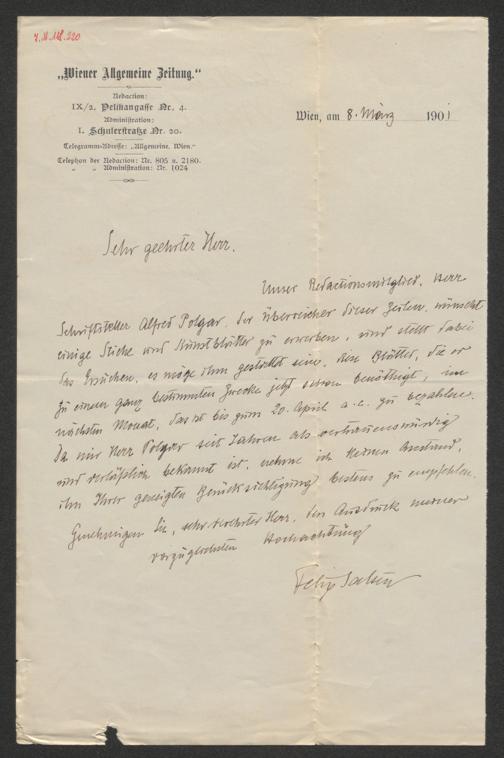 „Wiener Allgemeine Zeitung.“
Redaction:
IX/2. Pelikangasse Nr. 4.
Administration:
I. Schulerstraße Nr. 20.
Telegramm-Adresse: „Allgemeine, Wien.“
Telephon der Redaction: Nr. 805 u. 2180.
„ „ Administration: Nr. 1024
Wien, am 8. März 1901
Sehr geehrter Herr.
Unser Redactionsmitglied, Herr
Schriftsteller Alfred Polgar, der Überreicher dieser Zeilen, wünscht
einige Stiche und Kunstblätter zu erwerben, und stellt dabei
das Ersuchen, es möge ihm gestattet sein, die Blätter, die er
zu einem ganz bestimmten Zwecke jetzt schon benöthigt, im
nächsten Monat, das ist bis zum 20. April a. c. zu bezahlen.
Da mir Herr Polgar seit Jahren als vertrauenswürdig
und verläßlich bekannt ist, nehme ich keinen Anstand,
ihn Ihrer geneigten Berücksichtigung bestens zu empfehlen.
Genehmigen Sie, sehr geehrter Herr, den Ausdruck meiner
vorzüglichsten Hochachtung
Felix Salten